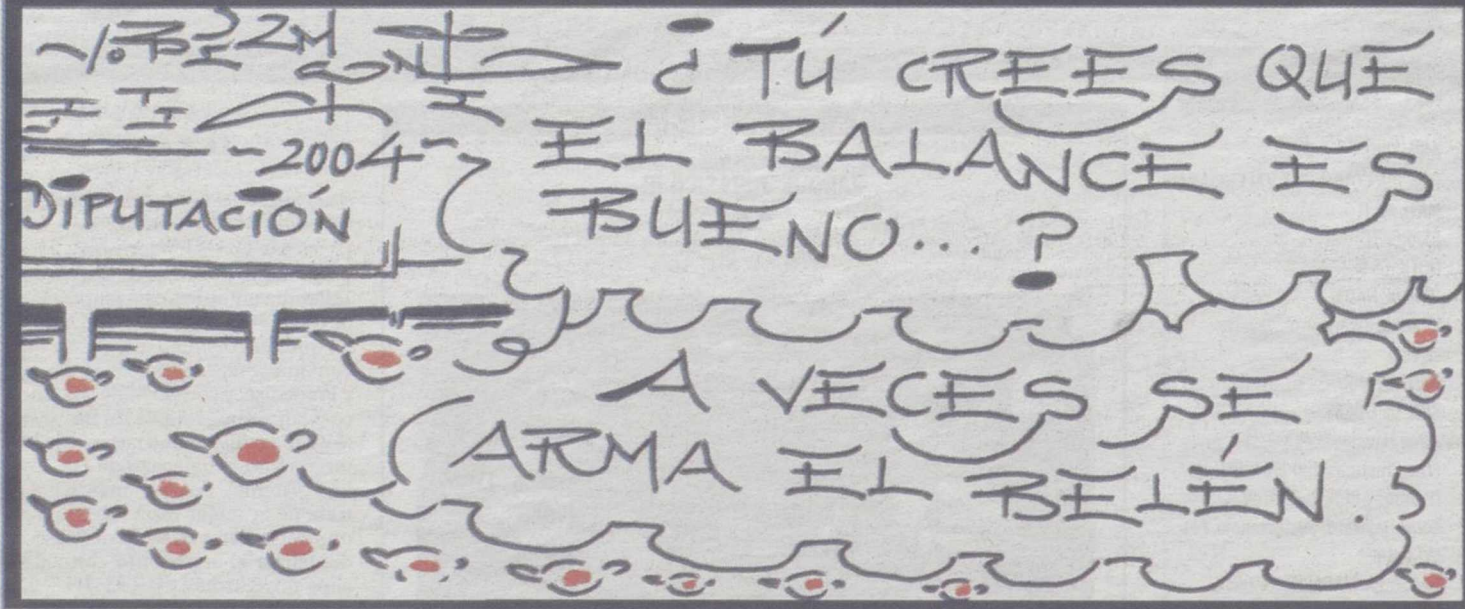 -2004-
DIPUTACIÓN
¿TÚ CREES QUE
EL BALANCE ES
BUENO...?
A VECES SE
ARMA EL BELÉN.